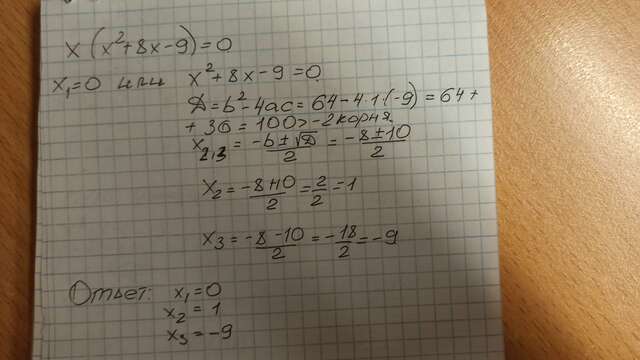 x(x²+8x-9)=0
x₁=0 или x²+8x-9=0
D=b²-4ac=64-4·1·(-9)=64+
+36=100>-2корня.
x₂,₃=(-b±√D)/2=(-8±10)/2
x₂=(-8+10)/2=2/2=1
x₃=(-8-10)/2=-18/2=-9
Ответ: x₁=0
x₂=1
x₃=-9